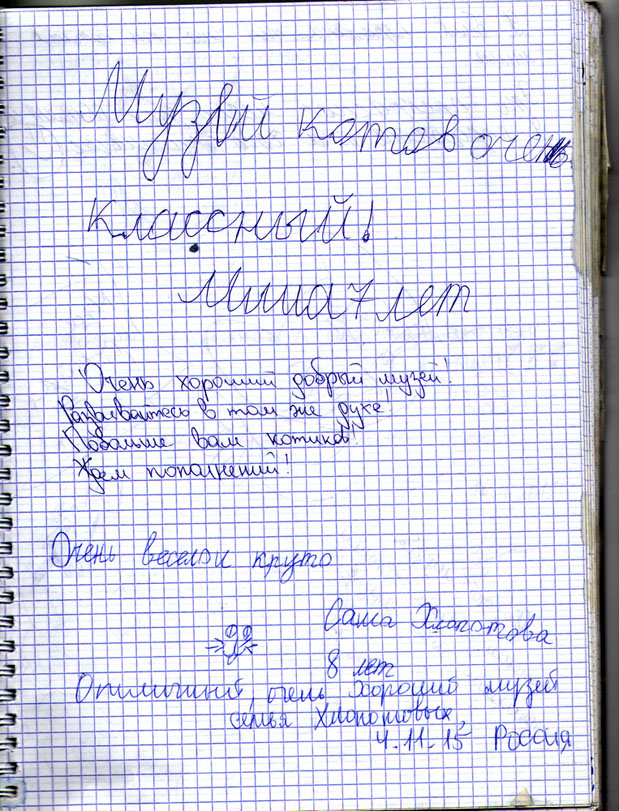 Музей котов очень
классный!
Миша 7 лет
Очень хороший добрый музей!
Развивайтесь в том же духе!
Побольше вам котиков!
Ждем пополнений!
Очень весело и круто
Саша Хлопотова
8 лет
Отличный, очень хороший музей
семья Хлопотовых,
4.11.15 Россия